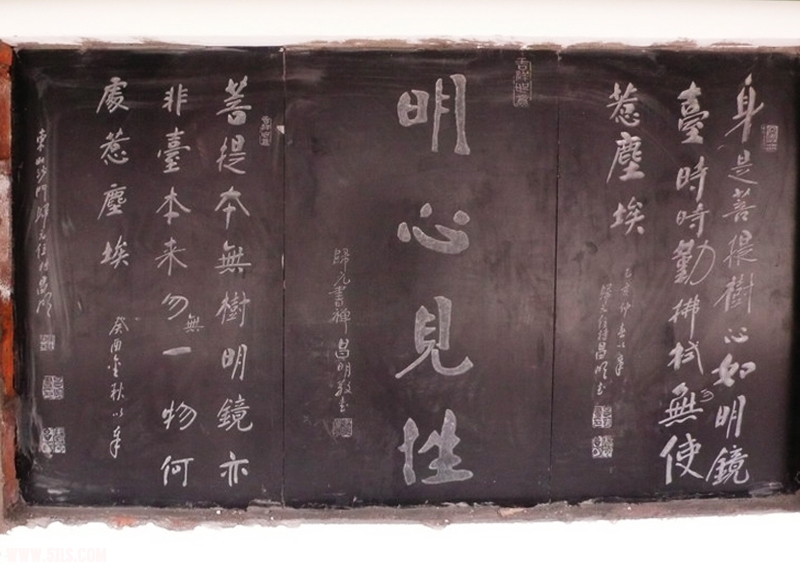 身是菩提樹心如明鏡
臺時時勤拂拭無使
惹塵埃
歸元住持昌明書
明心見性
歸元書禪昌明敬書
菩提本無樹明鏡亦
非臺本来勿一物何
無
處惹塵埃
癸酉金秋以筆
東山沙門歸元住持昌明